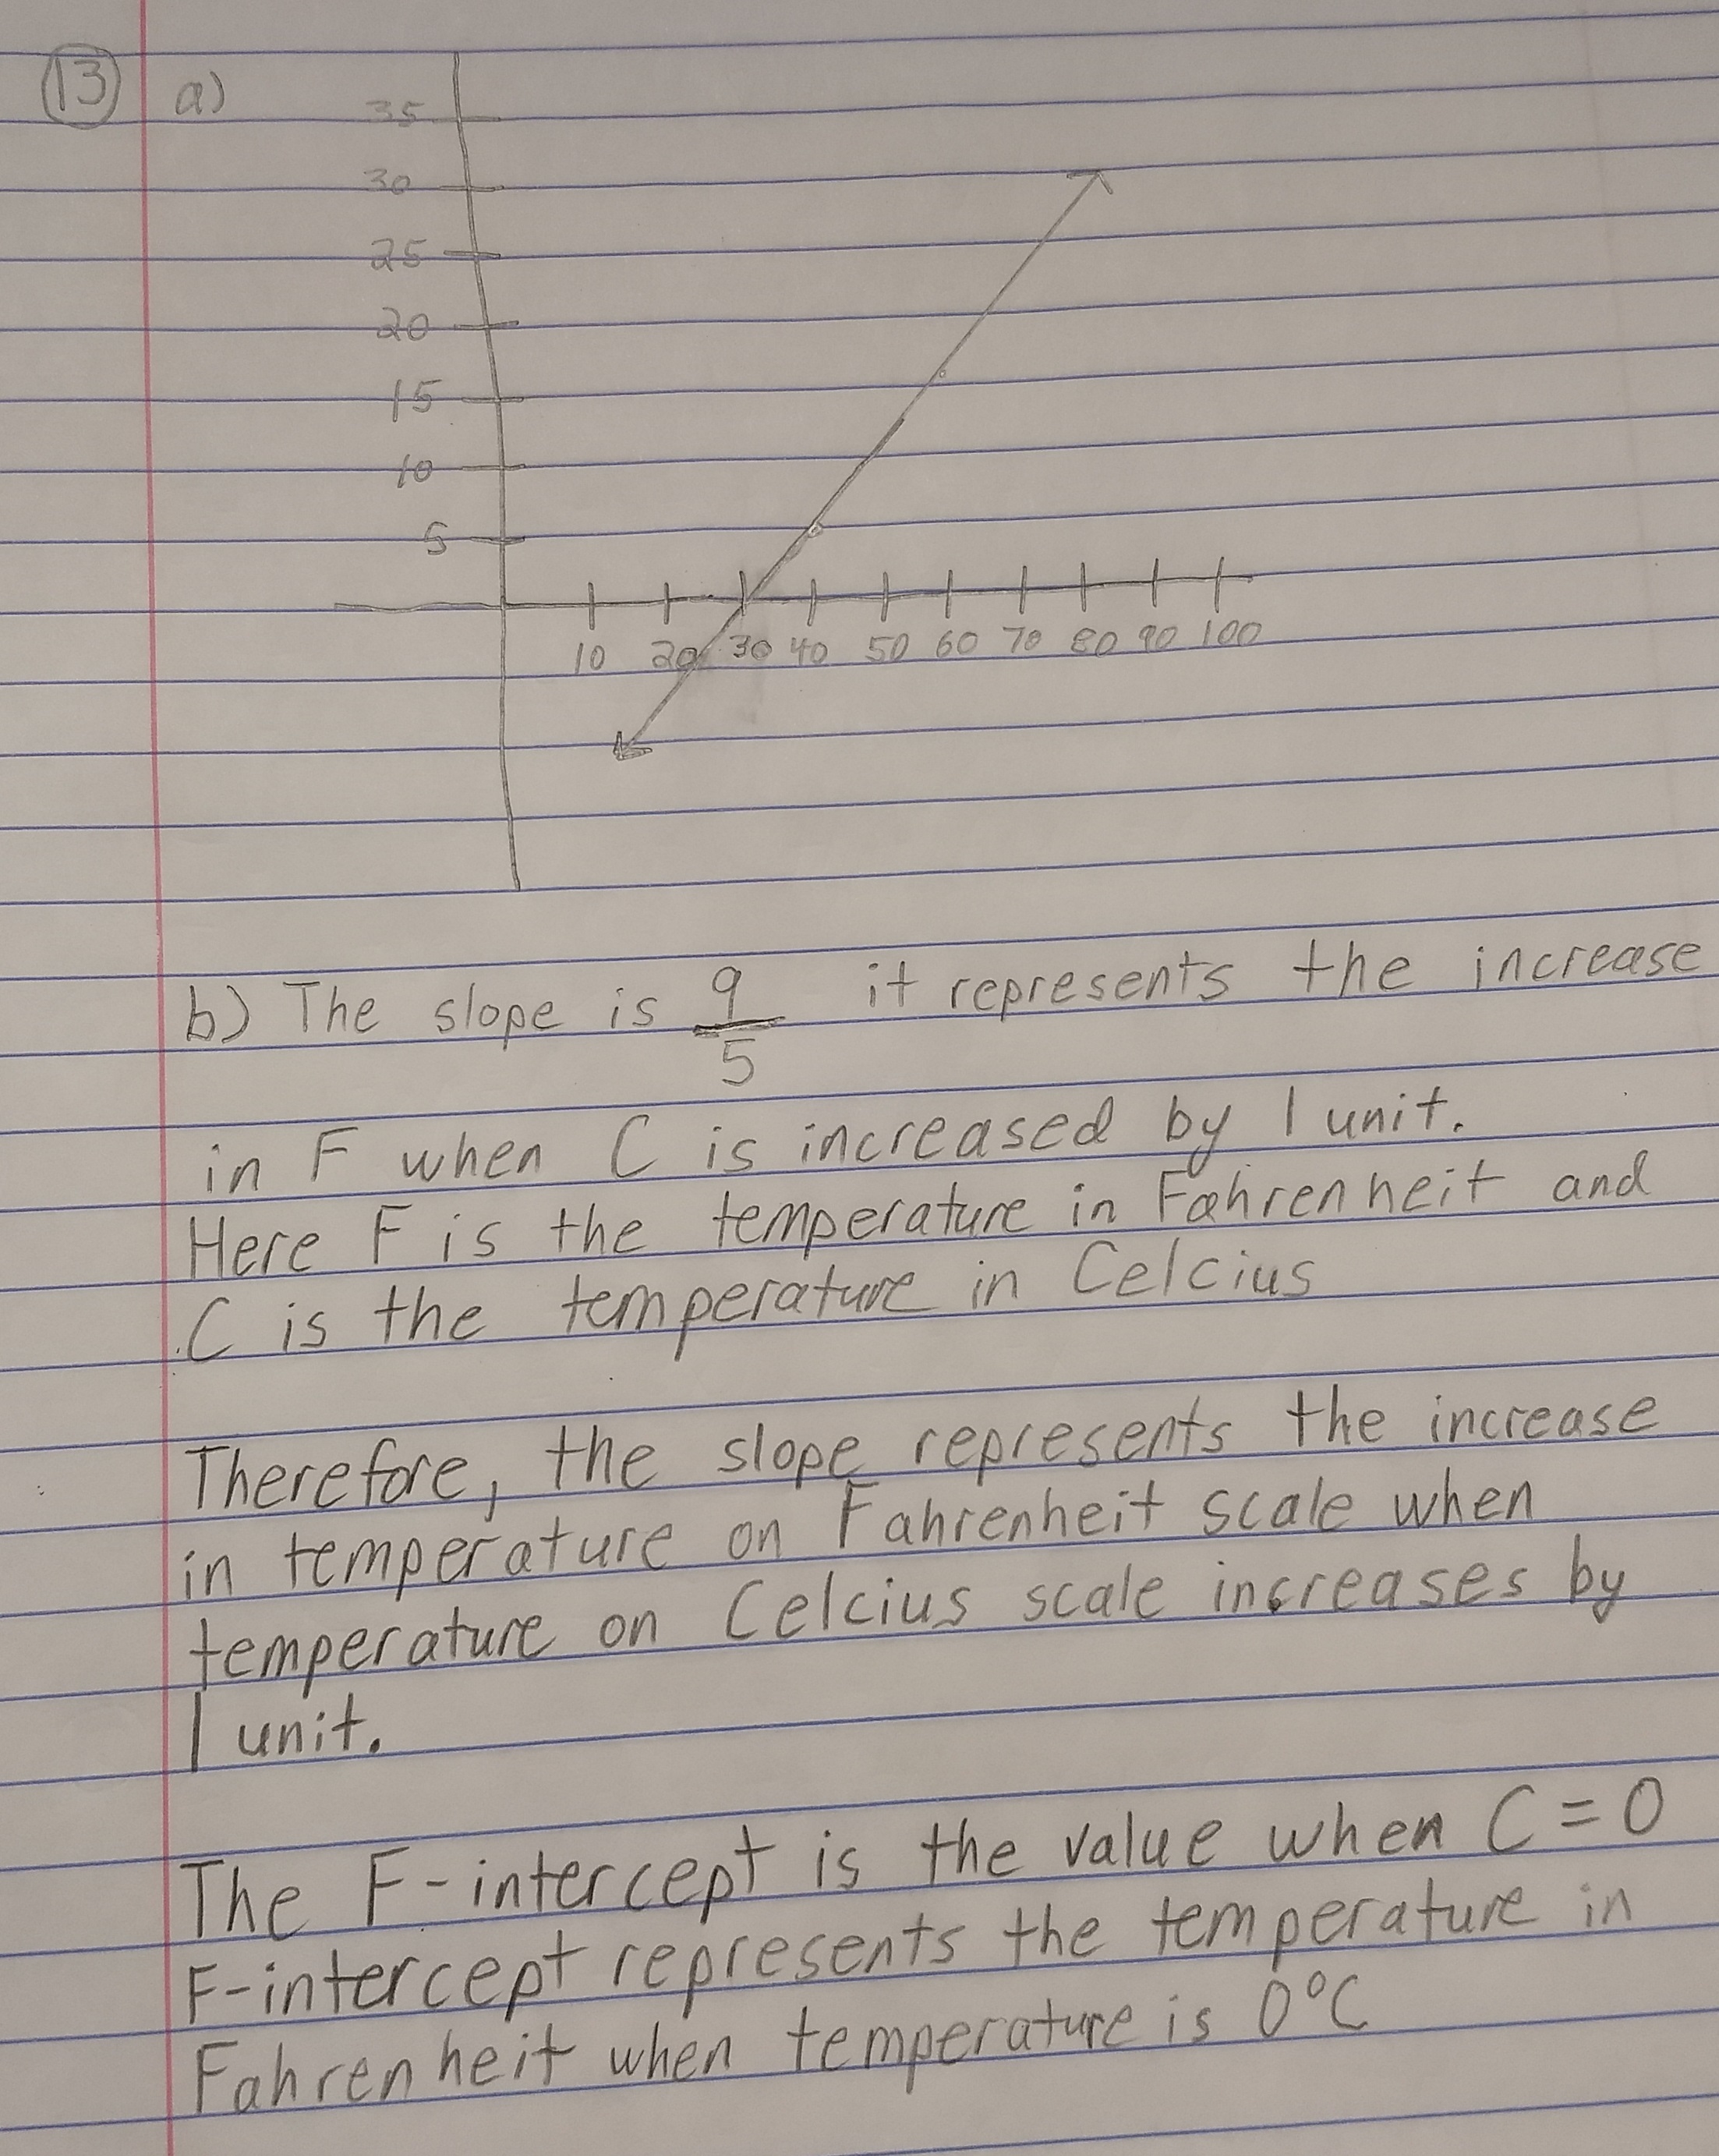 13 a)
35
30
25
20
15
10
5
10 20 30 40 50 60 70 80 90 100
b) The slope is 9/5 it represents the increase
in F when C is increased by 1 unit.
Here F is the temperature in Fahrenheit and
C is the temperature in Celcius
Therefore, the slope represents the increase
in temperature on Fahrenheit scale when
temperature on Celcius scale increases by
1 unit.
The F-intercept is the value when C = 0
F-intercept represents the temperature in
Fahrenheit when temperature is 0°C